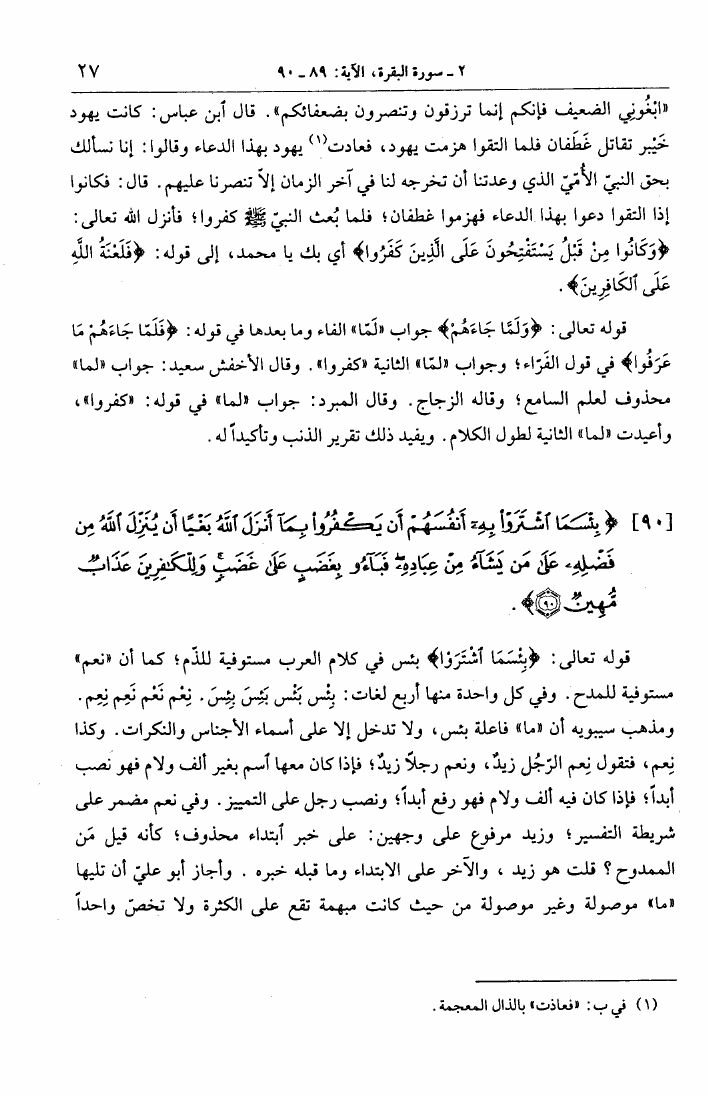 ٢ ـ سورة البقرة، الآية: ٨٩ ـ ٩٠ ٢٧
«ابْغُوني الضعيف فإنكم إنما ترزقون وتنصرون بضعفائكم». قال ٱبن عباس: كانت يهود
خَيْبر تقاتل غَطَفان فلما التقوا هزمت يهود، فعادت(١) يهود بهذا الدعاء وقالوا: إنا نسألك
بحق النبيّ الأُمّيّ الذي وعدتنا أن تخرجه لنا في آخر الزمان إلاّ تنصرنا عليهم. قال: فكانوا
إذا التقوا دعوا بهذا الدعاء فهزموا غطفان؛ فلما بُعث النبيّ ﷺ كفروا؛ فأنزل الله تعالى:
﴿وَكَانُوا مِنْ قَبْلُ يَسْتَفْتِحُونَ عَلَى الَّذِينَ كَفَرُوا﴾ أي بك يا محمد، إلى قوله: ﴿فَلَعْنَةُ اللَّهِ
عَلَى ٱلكَافِرِينَ﴾.
قوله تعالى: ﴿وَلَمَّا جَاءَهُمْ﴾ جواب «لَمّا» الفاء وما بعدها في قوله: ﴿فَلَمَّا جَاءَهُمْ مَا
عَرَفُوا﴾ في قول الفَرّاء؛ وجواب «لمّا» الثانية «كفروا». وقال الأخفش سعيد: جواب «لما»
محذوف لعلم السامع؛ وقاله الزجاج. وقال المبرد: جواب «لما» في قوله: «كفروا»،
وأعيدت «لما» الثانية لطول الكلام. ويفيد ذلك تقرير الذنب وتأكيداً له.
[٩٠] ﴿بِئْسَمَا ٱشْتَرَوْا۟ بِهِۦٓ أَنفُسَهُمْ أَن يَكْفُرُوا۟ بِمَآ أَنزَلَ ٱللَّهُ بَغْيًا أَن يُنَزِّلَ ٱللَّهُ مِن
فَضْلِهِۦ عَلَىٰ مَن يَشَآءُ مِنْ عِبَادِهِۦ ۖ فَبَآءُو بِغَضَبٍ عَلَىٰ غَضَبٍ ۚ وَلِلْكَٰفِرِينَ عَذَابٌ
مُّهِينٌ ۝٩٠﴾.
قوله تعالى: ﴿بِئْسَمَا ٱشْتَرَوْا﴾ بئس في كلام العرب مستوفية للذّم؛ كما أن «نعم»
مستوفية للمدح. وفي كل واحدة منها أربع لغات: بِئْس بَئْس بَئِسَ بِئِسَ. نِعْم نَعْم نَعِم نِعِم.
ومذهب سيبويه أن «ما» فاعلة بئس، ولا تدخل إلا على أسماء الأجناس والنكرات. وكذا
نِعم، فتقول نِعم الرّجُل زيدٌ، ونعم رجلاً زيدٌ؛ فإذا كان معها ٱسم بغير ألف ولام فهو نصب
أبداً؛ فإذا كان فيه ألف ولام فهو رفع أبداً؛ ونصب رجل على التمييز. وفي نعم مضمر على
شريطة التفسير؛ وزيد مرفوع على وجهين: على خبر ٱبتداء محذوف؛ كأنه قيل مَن
الممدوح؟ قلت هو زيد ، والآخر على الابتداء وما قبله خبره . وأجاز أبو عليّ أن تليها
«ما» موصولة وغير موصولة من حيث كانت مبهمة تقع على الكثرة ولا تخصّ واحداً
(١) في ب: «فعاذت» بالذال المعجمة.